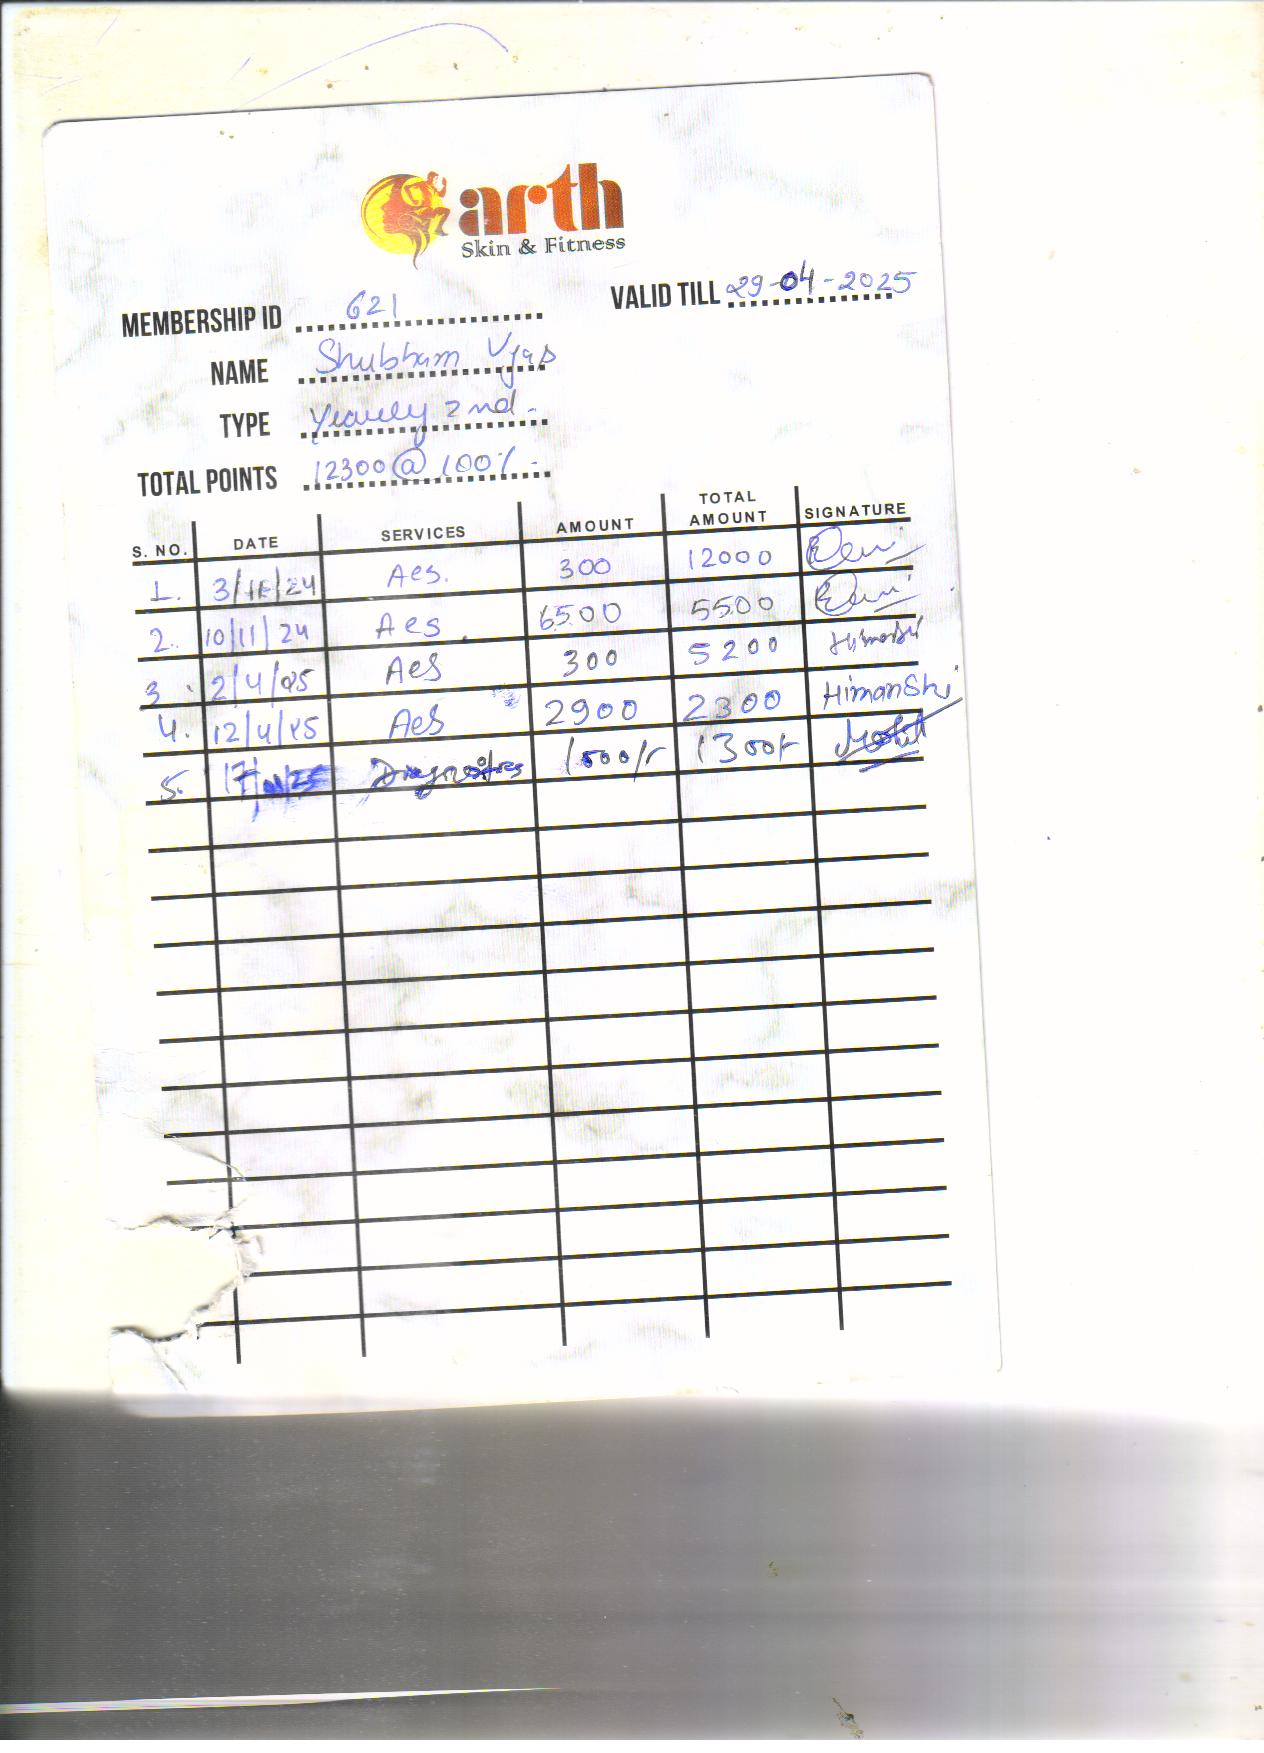 arth
Skin & Fitness
MEMBERSHIP ID 621 VALID TILL 29-04-2025
NAME Shubham Vyas
TYPE Yearly 2nd.
TOTAL POINTS 12300@100%.
S. NO. DATE SERVICES AMOUNT TOTAL AMOUNT SIGNATURE
1. 3/ /24 Aes. 300 12000
2. 10/11/24 Aes. 6500 5500
3. 2/4/25 Aes 300 5200 Himanshi
4. 12/4/25 Aes 2900 2300 HimanShi
5. 17/ /25 1000/- 1300/- Mohit